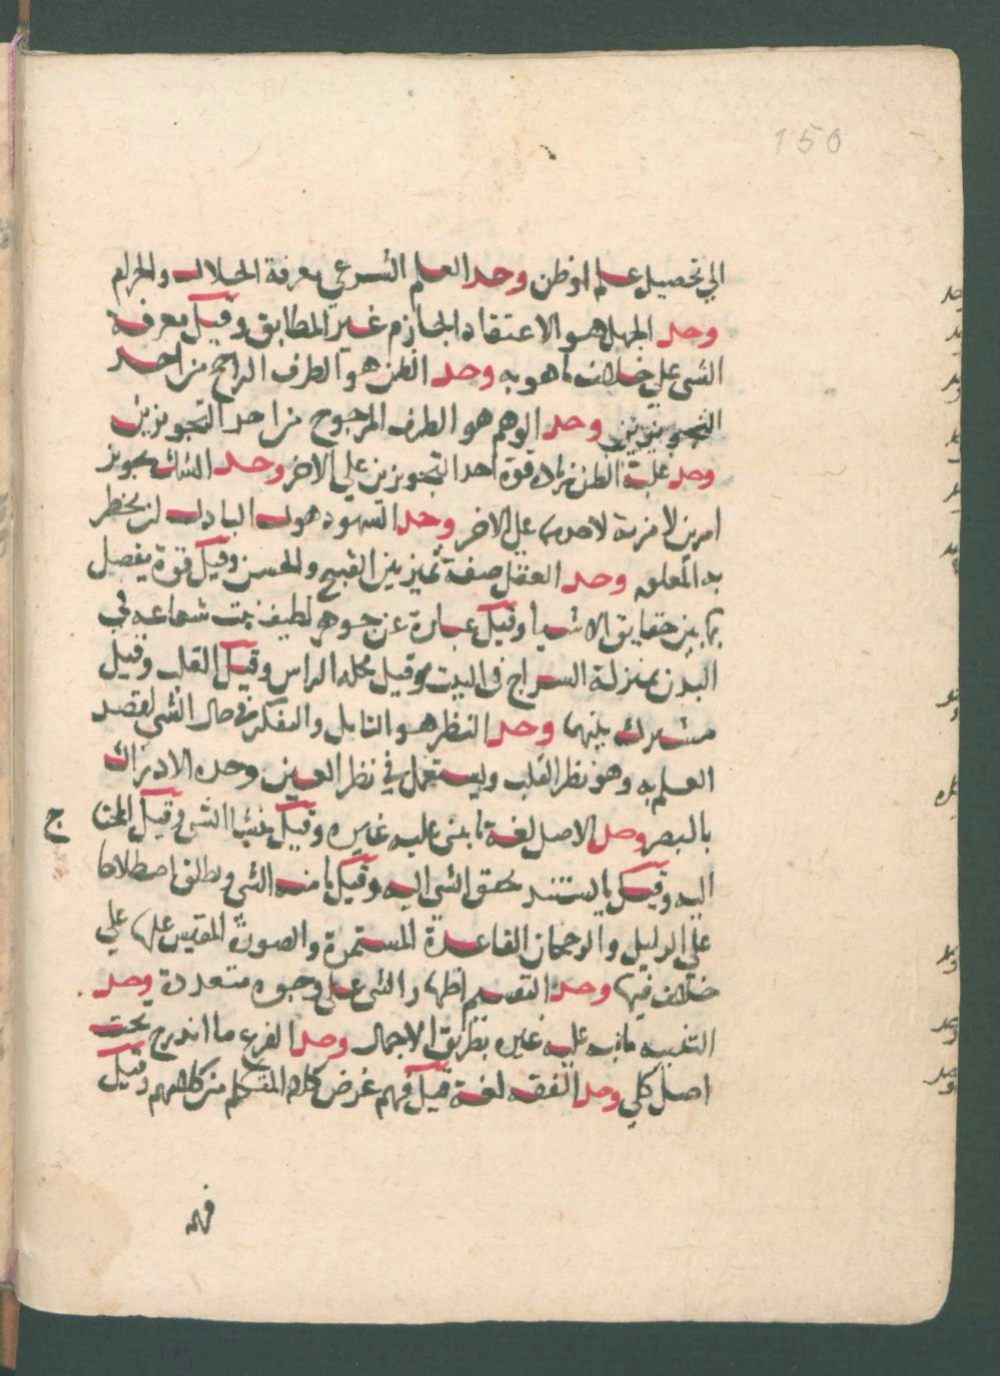 150
الي تحصيل علم او ظن وحد العلم الشرعي معرفة الحلال والحرام
وحد الجهل هو الاعتقاد الجازم غير المطابق وقيل معرفة
الشي علي خلاف ما هو به وحد الظن هو الطرف الراجح من احد
التجويزين وحد الوهم هو الطرف المرجوح من احد التجويزين
وحد غلبة الظن زيادة قوة احد التجويزين علي الاخر وحد الشك تجويز
امرين لا مزية لاحدهما علي الاخر وحد السهو ذهول البال عن ان يخطر
به المعلوم وحد العقل صفة تميز بين القبيح والحسن وقيل قوة يفصل
بها بين حقايق الاشيا وقيل عبارة عن جوهر لطيف شعاعه في
البدن بمنزلة السراج في البيت وقيل محله الراس وقيل القلب وقيل
مشترك بينهما وحد النظر هو التامل والتفكر في حال الشي لقصد
العلم به وهو نظر القلب ويستعمل في نظر العين وحده الادراك
بالبصر وحد الاصل لغة ما بني عليه غيره وقيل منشا الشي وقيل المحتاج
اليه وقيل ما يستند تحقق الشي اليه وقيل ما منه الشي ويطلق اصطلاحا
علي الدليل والرجحان القاعدة المستمرة والصورة المقيس عليها علي
خلاف فيها وحد التقسيم اظهار الشي علي وجوه متعددة وحد
التنبيه ما نبه عليه غيره بطريق الاجمال وحد الفرع ما اندرج تحت
اصل كلي وحد الفقه لغة قيل فهم غرض كلام المتكلم من كلامهم وقيل
فهم